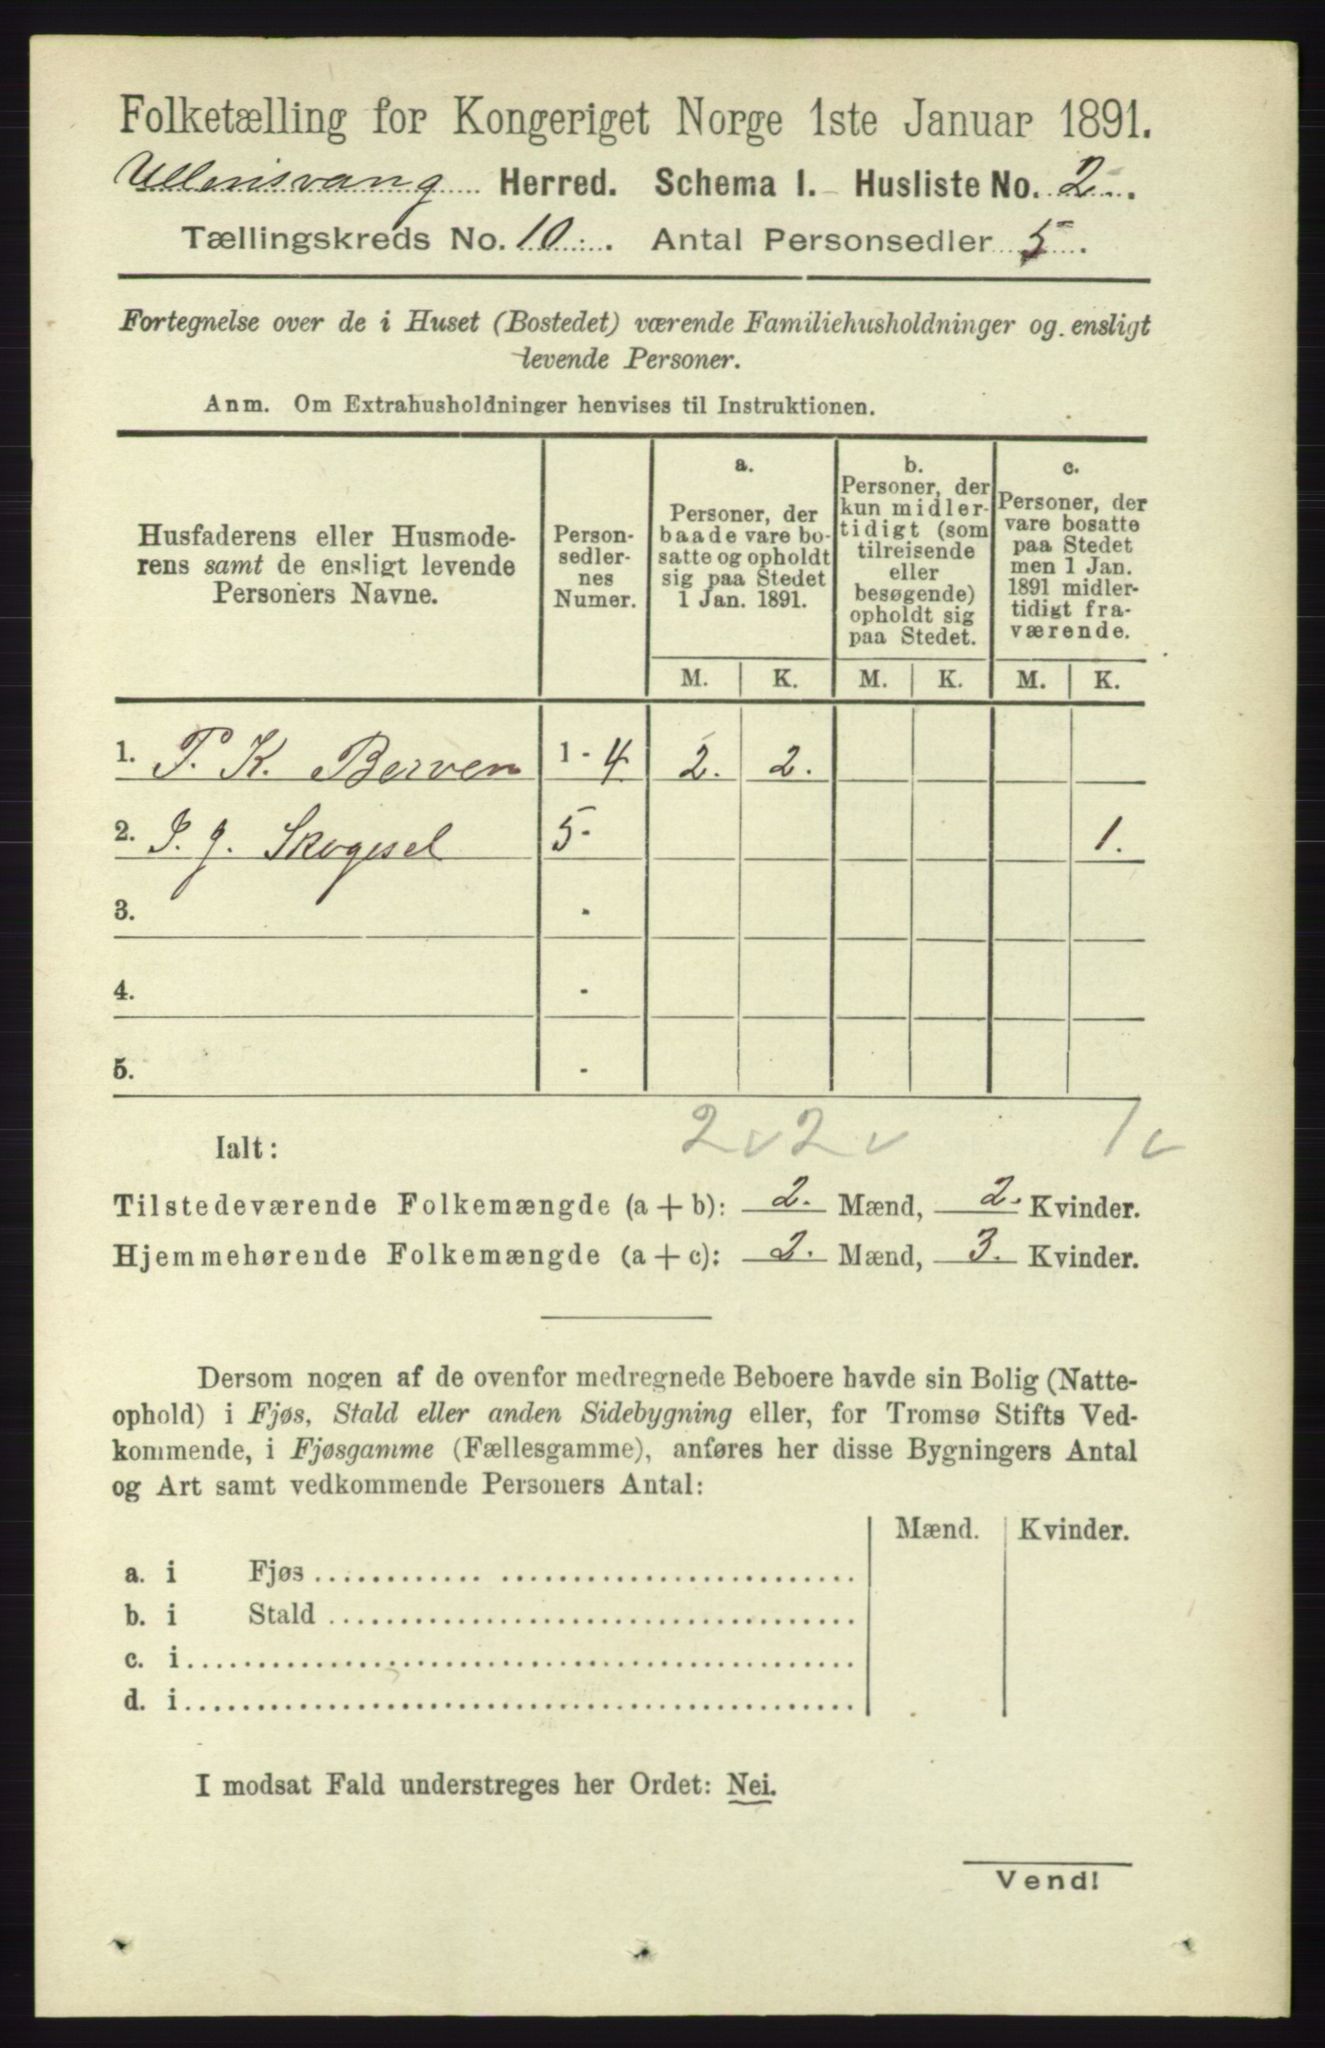 Folketælling for Kongeriget Norge 1ste Januar 1891.
Ullensvang Herred. Schema I. Husliste No. 2.
Tællingskreds No. 10. Antal Personsedler 5.
Fortegnelse over de i Huset (Bostedet) værende Familiehusholdninger og ensligt
levende Personer.
Anm. Om Extrahusholdninger henvises til Instruktionen.
Husfaderens eller Husmode-
rens samt de ensligt levende
Personers Navne.
Person-
sedler-
nes
Numer.
a.
Personer, der
baade vare bo-
satte og opholdt
sig paa Stedet
1 Jan. 1891.
b.
Personer, der
kun midler-
tidigt (som
tilreisende
eller
besøgende)
opholdt sig
paa Stedet.
c.
Personer, der
vare bosatte
paa Stedet
men 1 Jan.
1891 midler-
tidigt fra-
værende.
M. K. M. K. M. K.
1. P. K. Berven 1 - 4 2. 2.
2. J. J. Skogesel 5 - 1.
3. -
4. -
5. -
Ialt: 2 2 1
Tilstedeværende Folkemængde (a + b): 2. Mænd, 2. Kvinder.
Hjemmehørende Folkemængde (a + c): 2. Mænd, 3. Kvinder.
Dersom nogen af de ovenfor medregnede Beboere havde sin Bolig (Natte-
ophold) i Fjøs, Stald eller anden Sidebygning eller, for Tromsø Stifts Ved-
kommende, i Fjøsgamme (Fællesgamme), anføres her disse Bygningers Antal
og Art samt vedkommende Personers Antal:
Mænd. Kvinder.
a. i Fjøs
b. i Stald
c. i
d. i
I modsat Fald understreges her Ordet: Nei.
Vend!